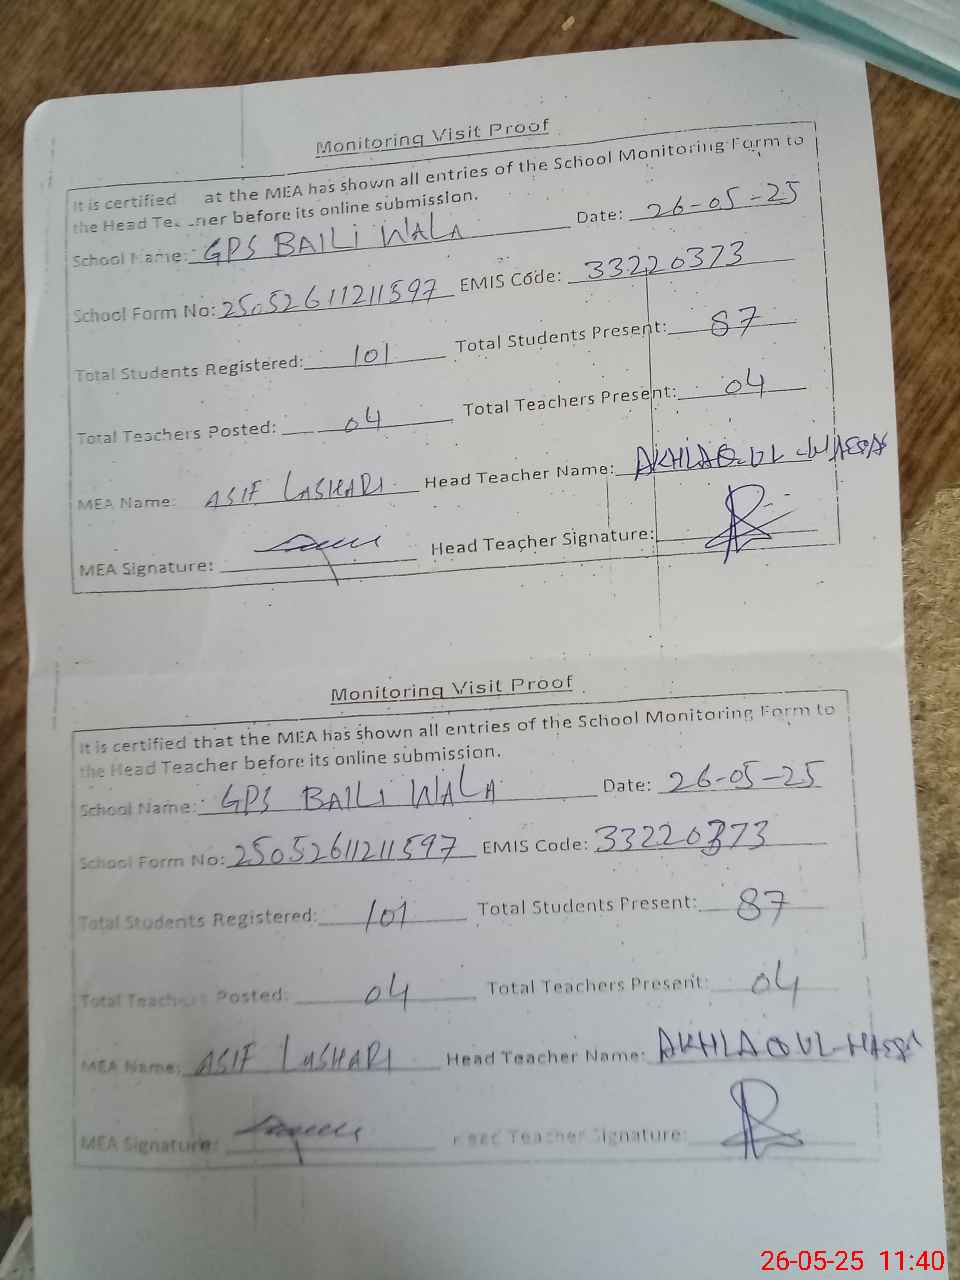 Monitoring Visit Proof
It is certified at the MEA has shown all entries of the School Monitoring Form to
the Head Teacher before its online submission.
School Name: GPS BAILI WALA Date: 26-05-25
School Form No: 25052611211597 EMIS Code: 33220373
Total Students Registered: 101 Total Students Present: 87
Total Teachers Posted: 04 Total Teachers Present: 04
MEA Name: ASIF LASHARI Head Teacher Name: AKHLAQ-UL
MEA Signature: Head Teacher Signature:
Monitoring Visit Proof
It is certified that the MEA has shown all entries of the School Monitoring Form to
the Head Teacher before its online submission.
School Name: GPS BAILI WALA Date: 26-05-25
School Form No: 25052611211597 EMIS Code: 33220373
Total Students Registered: 101 Total Students Present: 87
Total Teachers Posted: 04 Total Teachers Present: 04
MEA Name: ASIF LASHARI Head Teacher Name: AKHLAQ UL
MEA Signature: Head Teacher Signature:
26-05-25 11:40